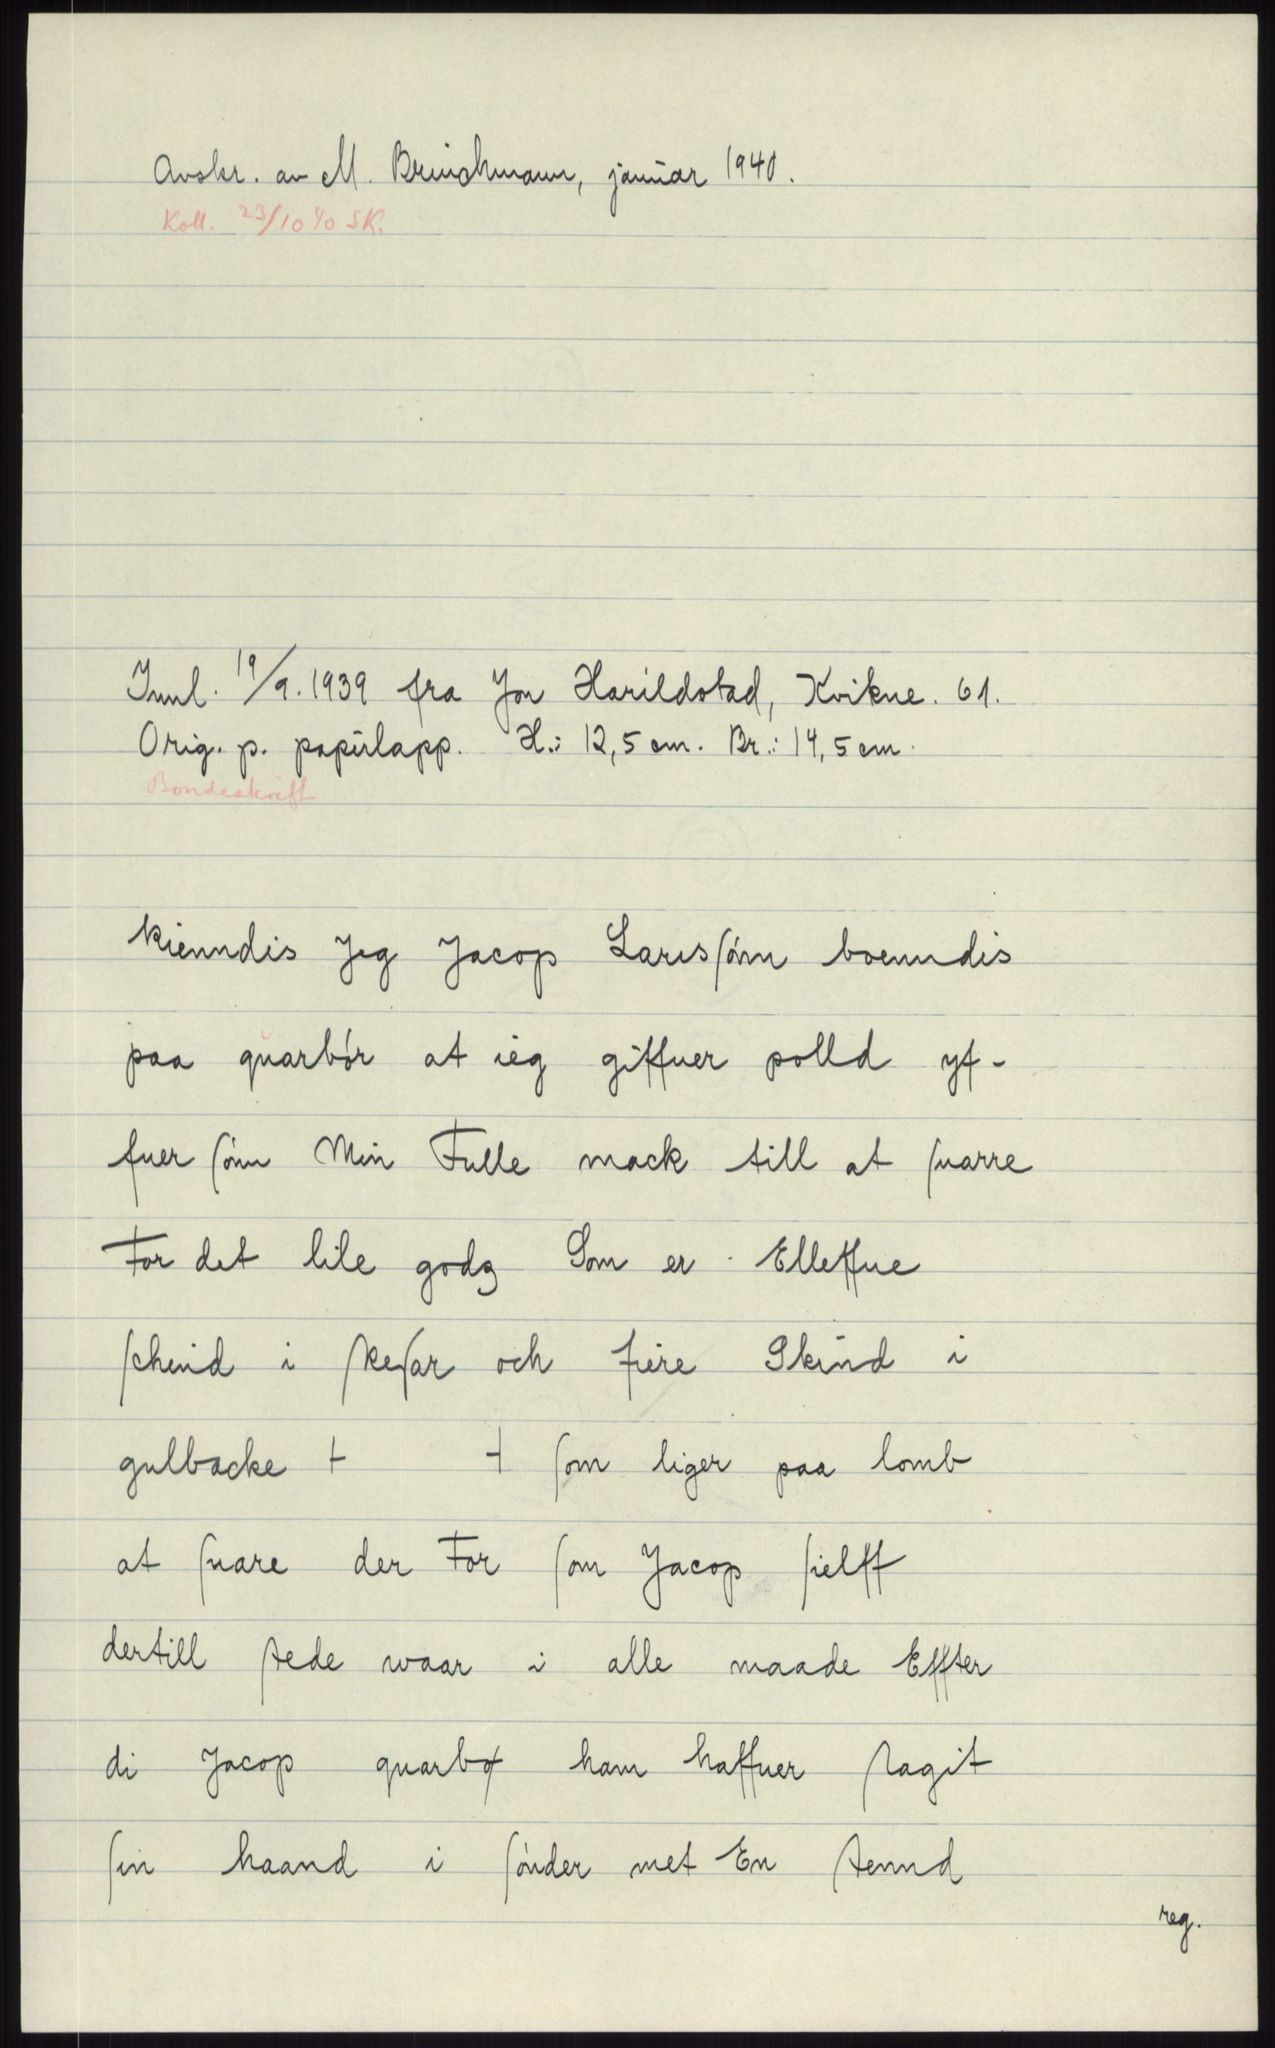 Avskr. av M. Brinchmann, januar 1940.
Koll. 23/10 40 SK.
Innl. 19/9. 1939 fra Jon Harildstad, Kvikne. 61.
Orig. p. papirlapp. H.: 12,5 cm. Br.: 14,5 cm.
Bondeskrift
kienndis Jeg Jacop Larisſønn boenndis
paa quarbør at ieg giffuer polld yf-
fuer ſønn Min Fulle mack till at ſuarre
For det lile godz Som er Elleffue
ſkind i ſkeſar och fiere Skind i
gulbacke + + ſom liger paa lomb
at ſuare der For ſom Jacop ſielff
dertill ſtede waar i alle maade Effter
di Jacop quarbø ham haffuer ſlagit
ſin haand i ſønder met En ſtennd
reg.